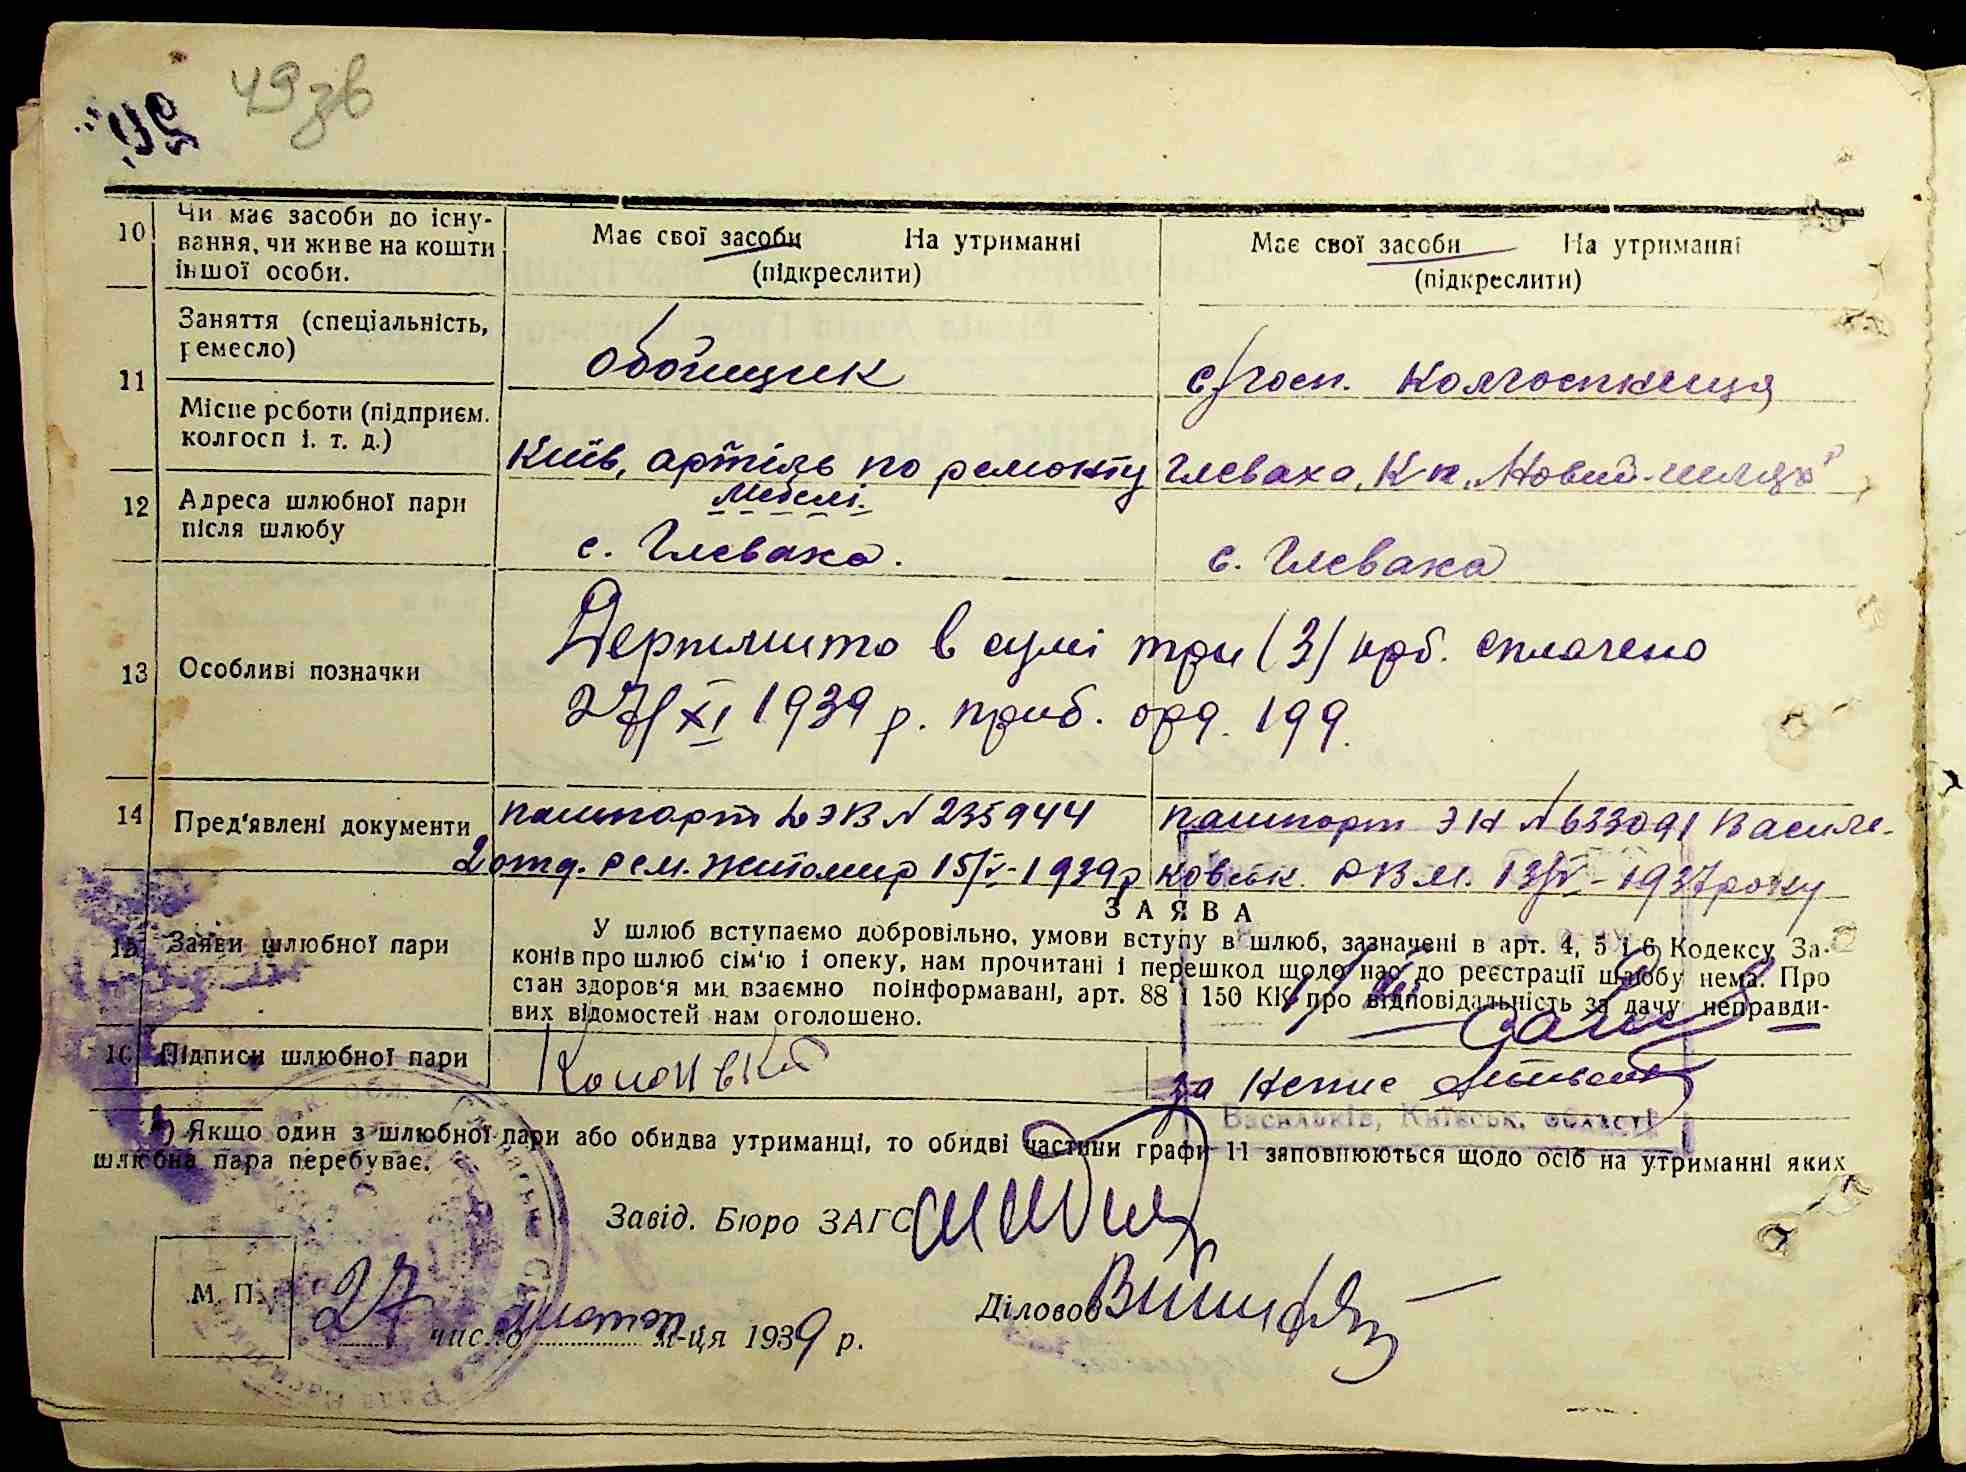 49 зв
10 Чи має засоби до існу-
вання, чи живе на кошти
іншої особи.
Має свої засоби На утриманні
(підкреслити)
Має свої засоби На утриманні
(підкреслити)
11 Заняття (спеціальність,
ремесло)
обойщик
с/госп. колгоспниця
Місце роботи (підприєм.
колгосп і. т. д.)
Київ, артіль по ремонту
мебелі.
Глеваха, Кп. „Новий-шлях"
12 Адреса шлюбної пари
після шлюбу
с. Глеваха.
с. Глеваха
13 Особливі позначки
Держмито в сумі три (3) крб. сплачено
27/XI 1939 р. приб. орд. 199.
14 Пред'явлені документи
пашпорт ЭВ № 235944
2 отд. рем. Житомир 15/V-1939р
пашпорт ЭН № 633091 Василь-
ковськ. РВМ. 13/V-1937 року
15 Заяви шлюбної пари
ЗАЯВА
У шлюб вступаємо добровільно, умови вступу в шлюб, зазначені в арт. 4, 5 і 6 Кодексу За-
конів про шлюб сім'ю і опеку, нам прочитані і перешкод щодо нас до реєстрації шлюбу нема. Про
стан здоров'я ми взаємно поінформавані, арт. 88 і 150 КК про відповідальність за дачу неправди-
вих відомостей нам оголошено.
16 Підписи шлюбної пари
за
Васильків, Київськ. області
*) Якщо один з шлюбної пари або обидва утриманці, то обидві частини графи 11 заповнюються щодо осіб на утриманні яких
шлюбна пара перебуває.
Завід. Бюро ЗАГС
Діловод
М. П.
27 число листоп. м-ця 1939 р.